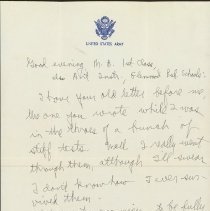 UNITED STATES ARMY
Good evening M. D. 1st Class,
I have your old letter before me,
the one you wrote while I was
in the throes of a bunch of
stiff tests. Well I really went
through them, although I'll swear
I don't know how I ever sur-
vived them.